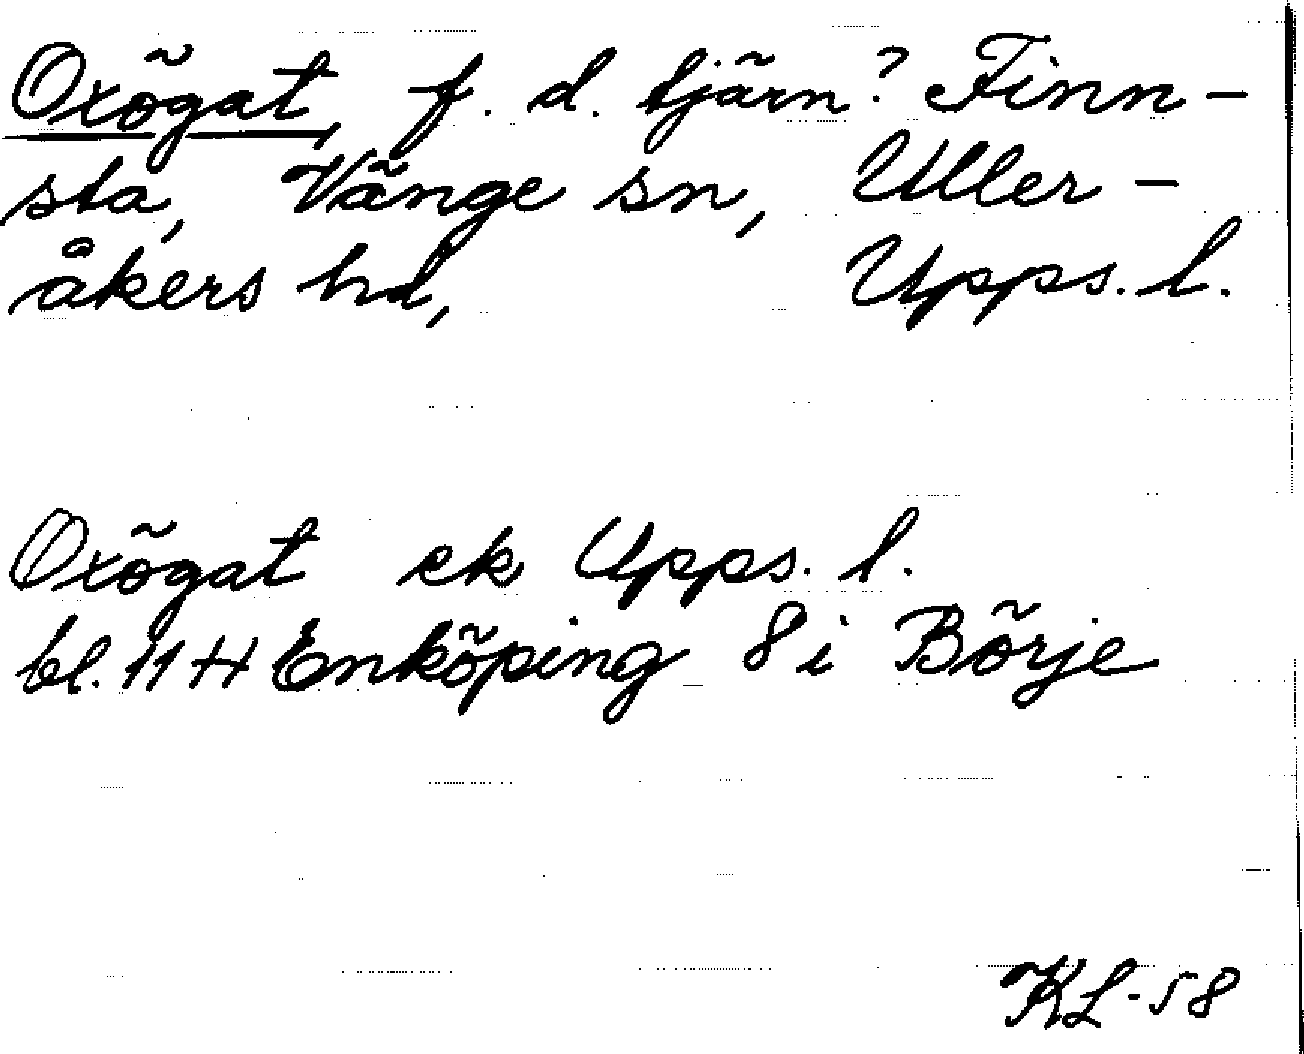 Oxögat, f. d. tjärn? Finn-
sta, Vänge sn, Uller-
åkers hd, Upps. l.
Oxögat ek Upps. l.
bl. 11 H Enköping 8 i Börje
KL-58